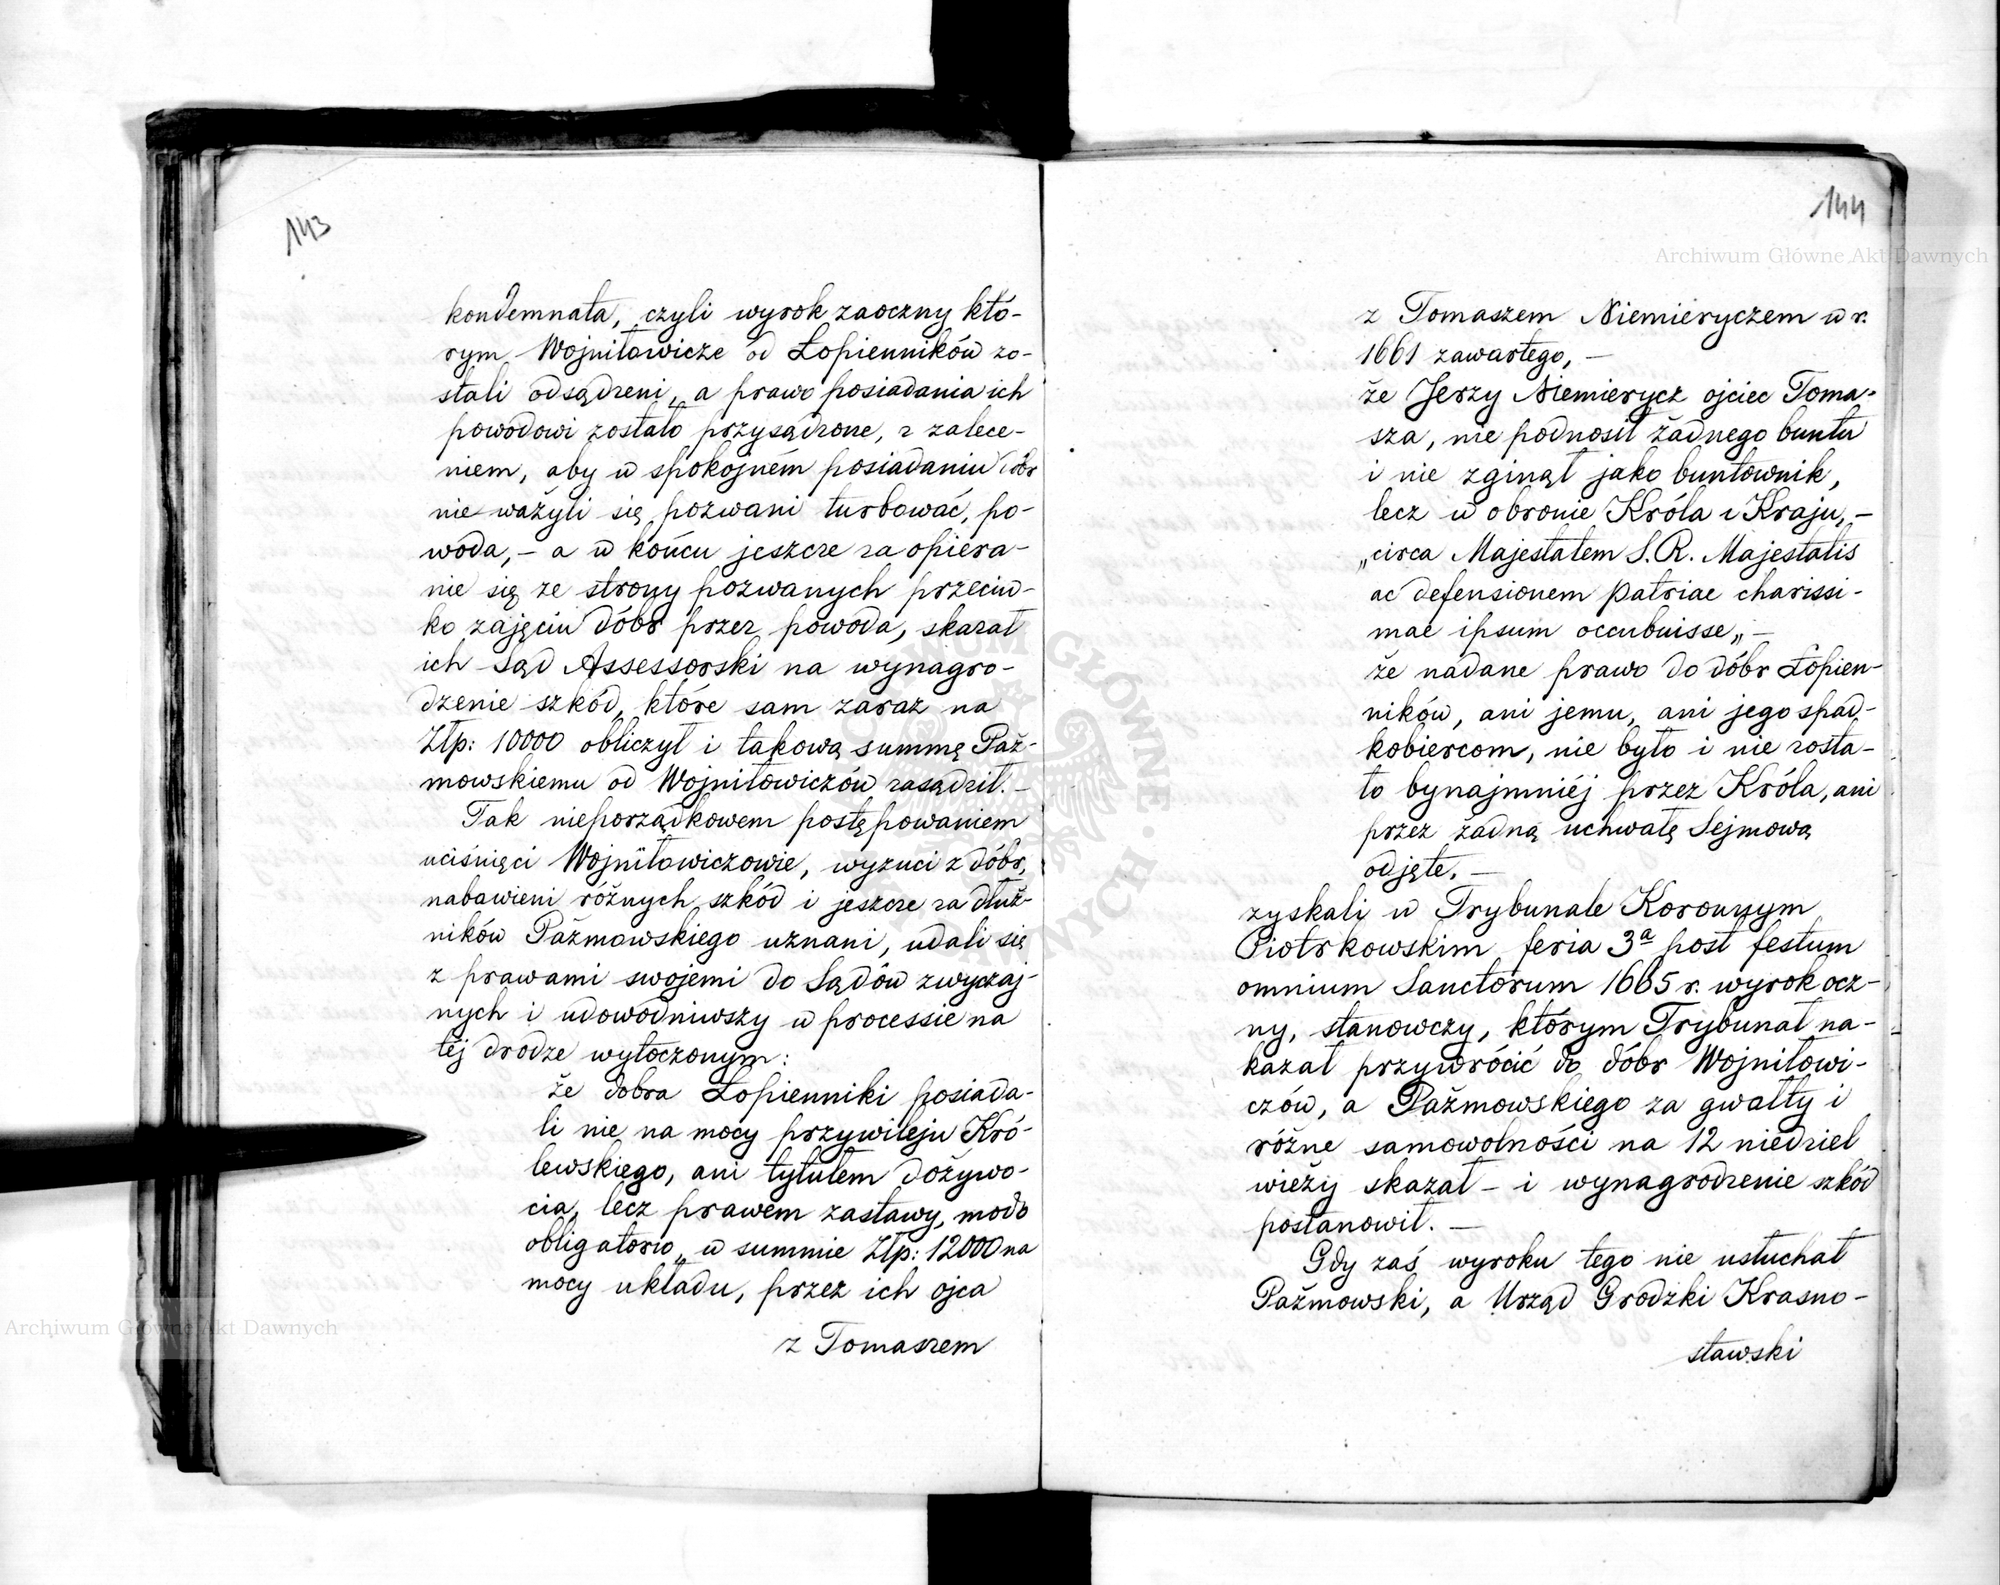 143
kondemnata, czyli wyrok zaoczny któ-
rym Wojniłowicze od Łopienników zo-
stali odsądzeni, a prawo posiadania ich
powodowi zostało przysądzone, z zalece-
niem, aby w spokojném posiadaniu dóbr
nie ważyli się pozwani turbować, po-
woda, – a w końcu jeszcze za opiera-
nie się ze strony pozwanych przeciw-
ko zajęciu dóbr przez powoda, skazał
ich Sąd Assessorski na wynagro-
dzenie szkód, które sam zaraz na
Złp: 10000 obliczył i takową summę Paź-
mowskiemu od Wojniłowiczów zasądził. –
Tak nieporządkowem postępowaniem
uciśnięci Wojniłowiczowie, wyzuci z dóbr,
nabawieni różnych szkód i jeszcze za dłuż-
ników Pażmowskiego uznani, udali się
z prawami swojemi do Sądów zwyczaj-
nych i udowodniwszy w processie na
téj drodze wytoczonym:
że dobra Łopienniki posiada-
li nie na mocy przywileju Kró-
lewskiego, ani tytułem dożywo-
cia, lecz prawem zastawy, modo
obligatorio, w summie Złp: 12000 na
mocy układu, przez ich ojca
z Tomaszem
144
z Tomaszem Niemieryczem w r.
1661 zawartego, –
że Jerzy Niemierycz ojciec Toma-
sza, nie podnosił żadnego buntu
i nie zginął jako buntownik,
lecz w obronie Króla i Kraju, –
„circa Majestatem S. R. Majestatis
ac defensionem patriae charissi-
mae ipsum occubuisse„ –
że nadane prawo do dóbr Łopien-
ników, ani jemu, ani jego spad-
kobiercom, nie było i nie zosta-
ło bynajmniéj przez Króla, ani
przez żadną uchwałę Sejmową
odjęte. –
zyskali w Trybunale Koronnym
Piotrkowskim feria 3ª post festum
omnium Sanctorum 1665 r. wyrok ocz-
ny, stanowczy, którym Trybunał na-
kazał przywrócić do dóbr Wojniłowi-
czów, a Pażmowskiego za gwałty i
różne samowolności na 12 niedziel
wieży skazał – i wynagrodzenie szkód
postanowił. –
Gdy zaś wyroku tego nie usłuchał
Pażmowski, a Urząd Grodzki Krasno-
stawski
Archiwum Główne Akt Dawnych
Archiwum Główne Akt Dawnych